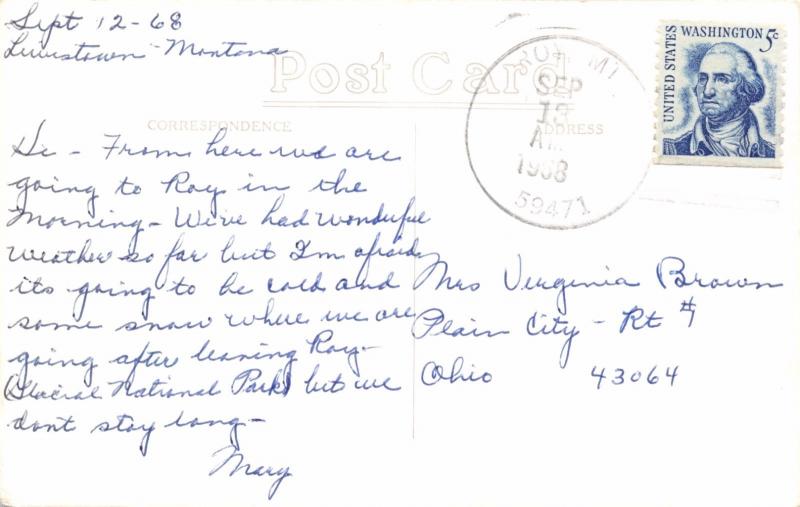 Sept 12-68
Lewistown Montana
Post Card
CORRESPONDENCE
ADDRESS
ROY, MT
SEP
13
AM
1968
59471
UNITED STATES
WASHINGTON 5c
Hi - From here we are
going to Roy in the
Morning - We've had wonderful
weather so far but I'm afraid
its going to be cold and
some snow where we are
going after leaving Roy -
(Glacial National Park) but we
dont stay long -
Mary
Mrs Virginia Brown
Plain City - Rt #1
Ohio 43064